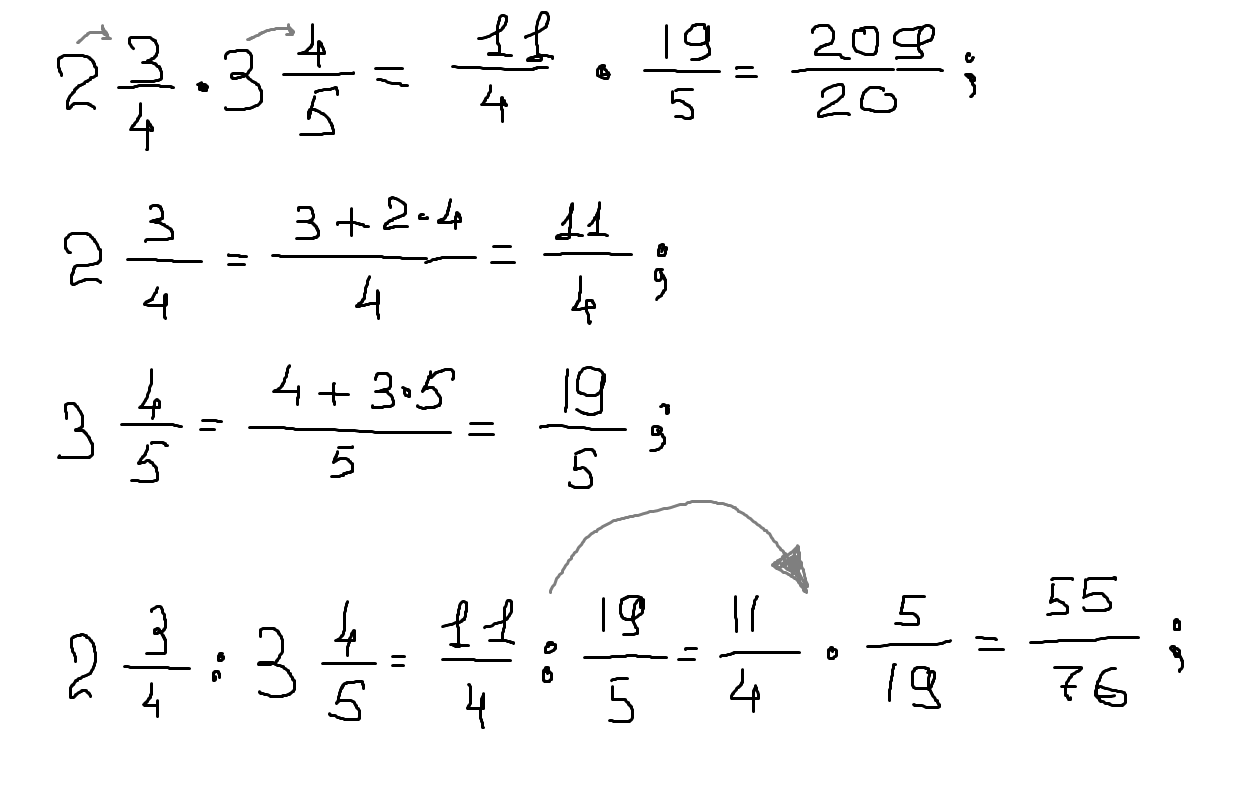 2 3/4 · 3 4/5 = 11/4 · 19/5 = 209/20 ;
2 3/4 = (3 + 2·4)/4 = 11/4 ;
3 4/5 = (4 + 3·5)/5 = 19/5 ;
2 3/4 : 3 4/5 = 11/4 : 19/5 = 11/4 · 5/19 = 55/76 ;